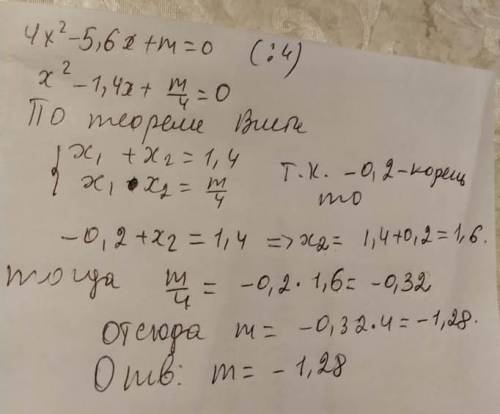 4x² - 5,6x + m = 0 (:4)
x² - 1,4x + m/4 = 0
По теореме Виета
{ x₁ + x₂ = 1,4
{ x₁ • x₂ = m/4 т.к. -0,2 - корень
то
-0,2 + x₂ = 1,4 => x₂ = 1,4+0,2 = 1,6.
тогда m/4 = -0,2 · 1,6 = -0,32
отсюда m = -0,32·4 = -1,28.
Отв: m = -1,28